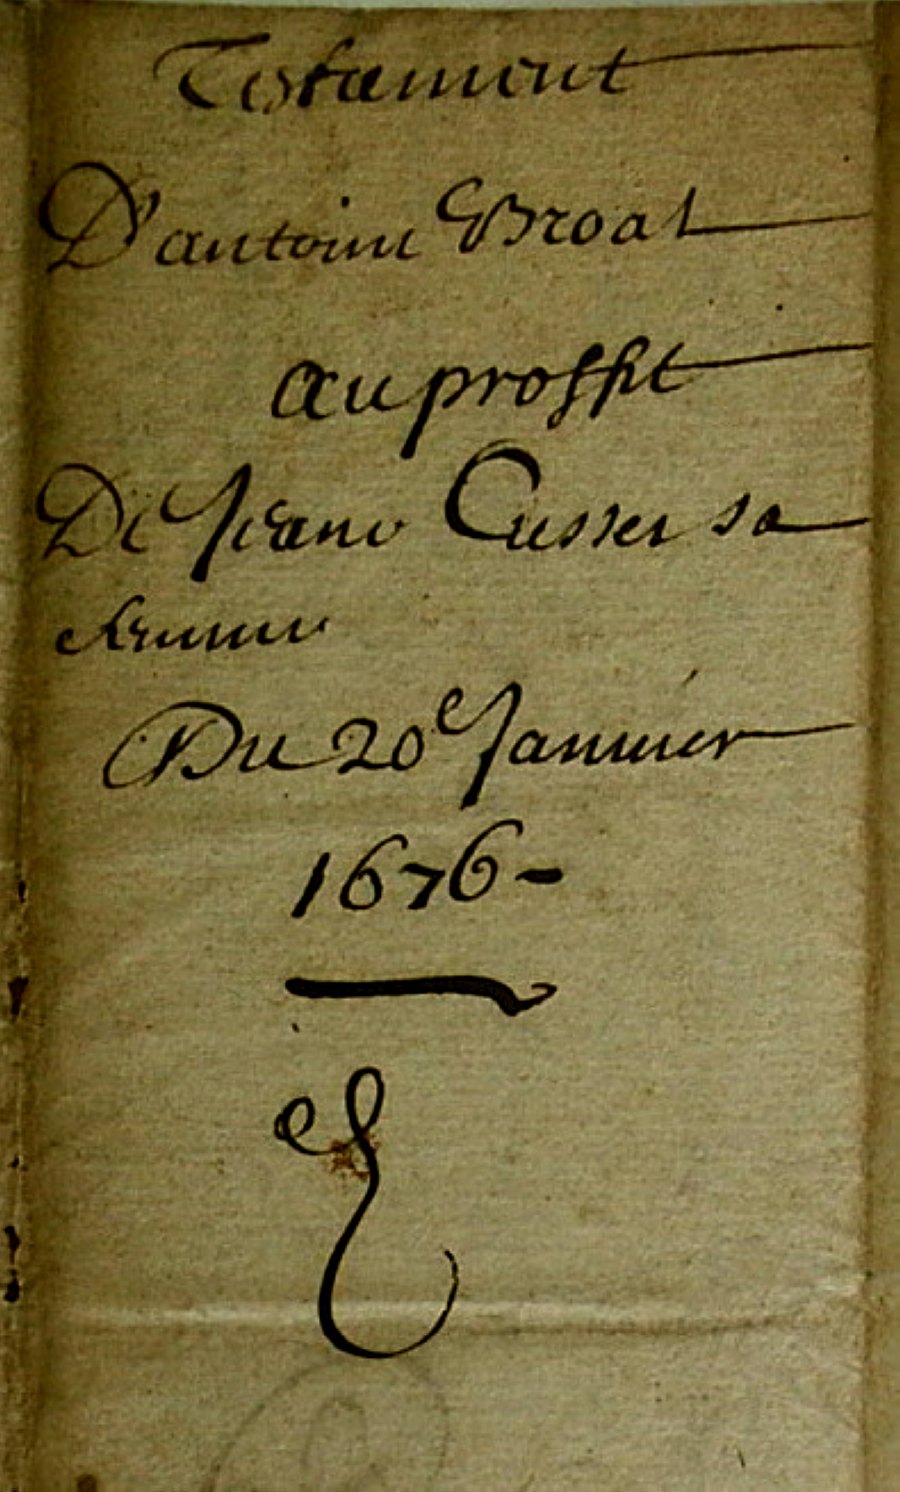 Testament
D'antoine Broal
au proffit
De Jeane Cusser sa
femme
Du 20e Janvier
1676 -